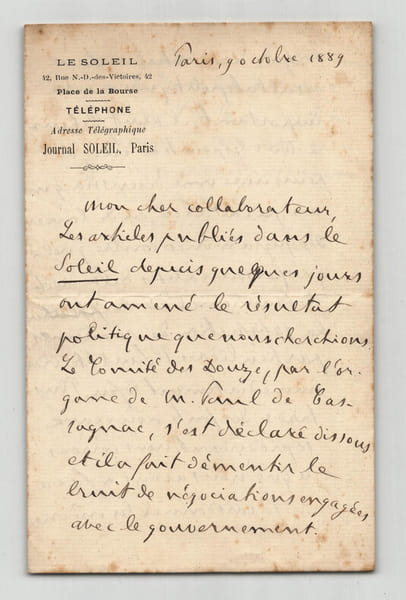 LE SOLEIL
42, Rue N.-D.-des-Victoires, 42
Place de la Bourse
TÉLÉPHONE
Adresse Télégraphique
Journal SOLEIL, Paris
Paris, 9 octobre 1889
Mon cher collaborateur,
Les articles publiés dans le
Soleil depuis quelques jours
ont amené le résultat
politique que nous cherchions.
Le Comité des Douze, par l'or-
gane de M. Paul de Cas-
sagnac, s'est déclaré dissous
et il a fait démentir le
bruit de négociations engagées
avec le gouvernement.